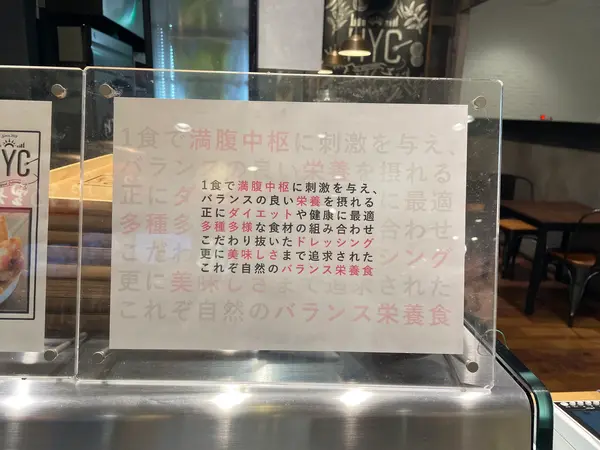 1食で満腹中枢に刺激を与え、
バランスの良い栄養を摂れる
正にダイエットや健康に最適
多種多様な食材の組み合わせ
こだわり抜いたドレッシング
更に美味しさまで追求された
これぞ自然のバランス栄養食
1食で満腹中枢に刺激を与え、
バランスの良い栄養を摂れる
正にダ
最適
多種多
合わせ
こだわ
シング
更に美味しさまで追求された
これぞ自然のバランス栄養食
YC
NYC